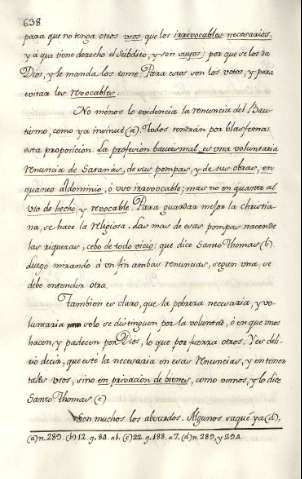 638
para que no tenga otros usos, que los irrevocables necesarios,
y a que tiene derecho el Subdito, y son suyos: por que se los da
Dios, y le manda los tome. Para esos son los votos, y para
evitar los revocables.
No menos lo evidencia la renuncia del Bau-
tismo, como ya insinué (a). Todos tendrán por blasfema
esta proposicion. La profesion bautismal, es una voluntaria
renuncia de Satanás, de sus pompas, y de sus obras, en
quanto al dominio, ó uso irrevocable; mas no en quanto al
uso de hecho, y revocable. Para guardar mejor la christia-
na, se hace la religiosa. Las mas de esas pompas nacen de
las riquezas, cebo de todo vicio; que dice Santo Thomas (b).
Luego mirando á un fin ambas renuncias, segun una, se
debe entender otra.
Tambien es claro, que la pobreza necesaria, y vo-
luntaria solo se distinguen por la voluntad, ó en que unos
hacen, y padecen por Dios, lo que por fuerza otros. Y es deli-
rio decir, que esté la necesaria en esas renuncias, y en tener
tales usos, sino en privacion de bienes, como vimos, y lo dice
Santo Thomas (c)
Son muchos los abusados. Algunos saqué ya (d),
(a) n. 289. (b) 12. q. 84. a 1. (c) 22. q. 188. a 7. (d) n. 289, y 594.